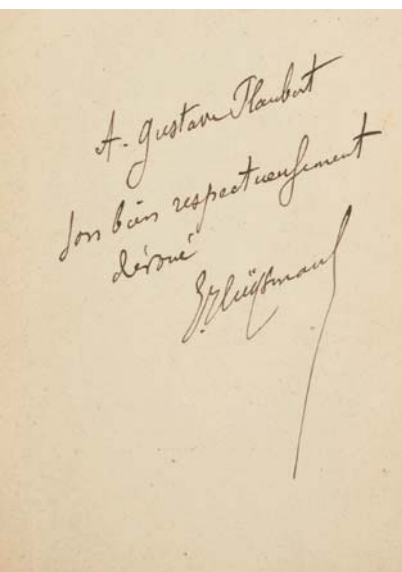 A. Gustave Flaubert
son bien respectueusement
dévoué
JKHuÿsmans